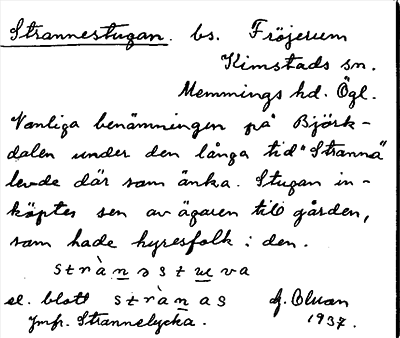 Strannestugan. bs. Fröjerum
Kimstads sn.
Memmings hd. Ögl.
Vanliga benämningen på Björk-
dalen under den långa tid "Stranna"
levde där som änka. Stugan in-
köptes sen av ägaren till gården,
som hade hyresfolk i den.
strànəstuva
el. blott strànas
Jmf. Strannelycka. 1937.